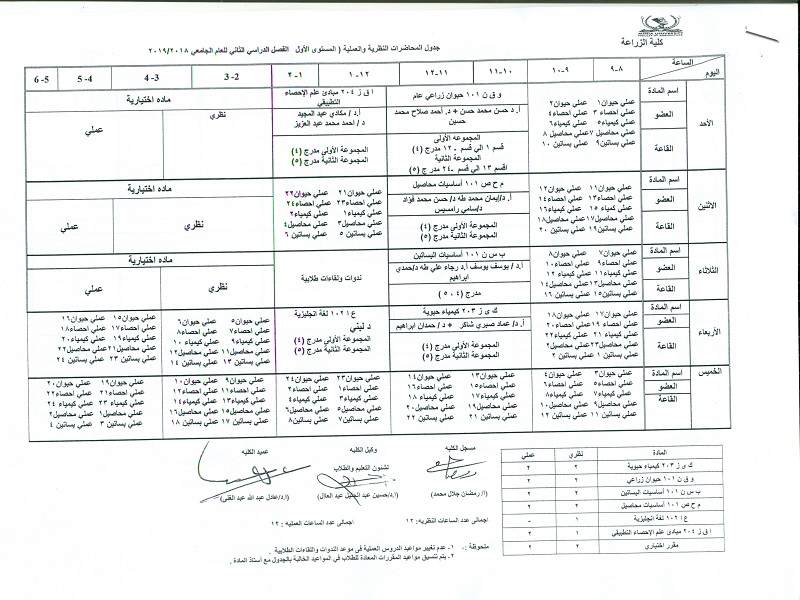 كلية الزراعة
جدول المحاضرات النظرية والعملية ( المستوى الأول الفصل الدراسي الثاني للعام الجامعي ٢٠١٩/٢٠١٨
الساعة
اليوم
٩-٨
١٠-٩
١١-١٠
١٢-١١
١-١٢
٢-١
3-2
4-3
5-4
6-5
الأحد
اسم المادة
العضو
القاعة
عملي حيوان١ عملي حيوان ٢
عملي احصاء ٣ عملي احصاء٤
عملي كيمياء٥ عملي كيمياء٦
عملي محاصيل ٧ عملي محاصيل ٨
عملي بساتين٩ عملي بساتين ١٠
و ق ن ١٠١ حيوان زراعي عام
أ. د حسن محمد حسن + د. أحمد صلاح محمد حسين
المجموعه الأولى
قسم ١ الي قسم ١٢ مدرج (٤)
المجموعة الثانية
قسم ١٣ الي قسم ٢٤ مدرج (٥)
ا ق ز ٢٠٤ مبادئ علم الإحصاء التطبيقي
أ.د / مكادي عبد المجيد
د / احمد محمد عبد العزيز
المجموعة الأولى مدرج (٤)
المجموعة الثانية مدرج (٥)
ماده اختيارية
نظري
عملي
الاثنين
اسم المادة
العضو
القاعة
عملي حيوان١١ عملي حيوان١٢
عملي احصاء١٣ عملي احصاء١٤
عملي كيمياء ١٥ عملي كيمياء١٦
عملي محاصيل١٧ عملي محاصيل١٨
عملي بساتين١٩ عملي بساتين ٢٠
م ح ص ١٠١ أساسيات محاصيل
أ.د/إيمان محمد طه د/ حسن محمد فؤاد
د/سامي رامسيس
المجموعة الأولى مدرج (٤)
المجموعة الثانية مدرج (٥)
عملي حيوان٢١ عملي حيوان٢٢
عملي احصاء٢٣ عملي احصاء٢٤
عملي كيمياء١ عملي كيمياء٢
عملي محاصيل٣ عملي محاصيل٤
عملي بساتين ٥ عملي بساتين ٦
ماده اختيارية
نظري
عملي
الثلاثاء
اسم المادة
العضو
القاعة
عملي حيوان٧ عملي حيوان٨
عملي احصاء٩ عملي احصاء١٠
عملي كيمياء١١ عملي كيمياء ١٢
عملي محاصيل١٣ عملي محاصيل١٤
عملي بساتين١٥ عملي بساتين ١٦
ب س ن ١٠١ أساسيات البساتين
أ.د / يوسف يوسف أ.د رجاء علي طه د/حمدي ابراهيم
مدرج (٤ ، ٥)
ندوات ولقاءات طلابية
ماده اختيارية
نظري
عملي
الأربعاء
اسم المادة
العضو
القاعة
عملي حيوان١٧ عملي حيوان١٨
عملي احصاء ١٩ عملي احصاء٢٠
عملي كيمياء٢١ عملي كيمياء٢٢
عملي محاصيل٢٣ عملي محاصيل٢٤
عملي بساتين ١ عملي بساتين ٢
ك ى ز ٢٠٣ كيمياء حيوية
أ.د/ عماد صبري شاكر + د / حمدان ابراهيم
المجموعة الأولى مدرج (٤)
المجموعة الثانية مدرج (٥)
ع ا ١٠٢ لغة انجليزية
د لبني
المجموعة الأولي مدرج (٤)
المجموعة الثانية مدرج (٥)
عملي حيوان٥ عملي حيوان٦
عملي احصاء٧ عملي احصاء٨
عملي كيمياء٩ عملي كيمياء ١٠
عملي محاصيل١١ عملي محاصيل١٢
عملي بساتين ١٣ عملي بساتين ١٤
عملي حيوان١٥ عملي حيوان١٦
عملي احصاء١٧ عملي احصاء١٨
عملي كيمياء١٩ عملي كيمياء٢٠
عملي محاصيل٢١ عملي محاصيل٢٢
عملي بساتين ٢٣ عملي بساتين ٢٤
الخميس
اسم المادة
العضو
القاعة
عملي حيوان٣ عملي حيوان٤
عملي احصاء٥ عملي احصاء٦
عملي كيمياء٧ عملي كيمياء٨
عملي محاصيل٩ عملي محاصيل١٠
عملي بساتين ١١ عملي بساتين ١٢
عملي حيوان١٣ عملي حيوان١٤
عملي احصاء١٥ عملي احصاء١٦
عملي كيمياء١٧ عملي كيمياء ١٨
عملي محاصيل١٩ عملي محاصيل٢٠
عملي بساتين ٢١ عملي بساتين ٢٢
عملي حيوان٢٣ عملي حيوان٢٤
عملي احصاء١ عملي احصاء٢
عملي كيمياء٣ عملي كيمياء٤
عملي محاصيل٥ عملي محاصيل٦
عملي بساتين٧ عملي بساتين٨
عملي حيوان٩ عملي حيوان١٠
عملي احصاء١١ عملي احصاء١٢
عملي كيمياء١٣ عملي كيمياء١٤
عملي محاصيل١٥ عملي محاصيل١٦
عملي بساتين ١٧ عملي بساتين ١٨
عملي حيوان١٩ عملي حيوان٢٠
عملي احصاء٢١ عملي احصاء٢٢
عملي كيمياء٢٣ عملي كيمياء ٢٤
عملي محاصيل١ عملي محاصيل٢
عملي بساتين ٣ عملي بساتين ٤
المادة نظري عملي
ك ى ز ٢٠٣ كيمياء حيوية ٢ ٢
و ق ن ١٠١ حيوان زراعي ٢ ٢
ب س ن ١٠١ أساسيات البساتين ٢ ٢
م ح ص ١٠١ أساسيات محاصيل ٢ ٢
ع ا ١٠٢ لغة انجليزية ١ -
ا ق ز ٢٠٤ مبادئ علم الإحصاء التطبيقي ١ ٢
مقرر اختياري ٢ ٢
مسجل الكليه
وكيل الكليه
لشئون التعليم والطلاب
عميد الكليه
(ا/ رمضان جلال محمد)
(ا.د/حسين عبد الجليل عبد العال)
(ا.د/عادل عبد الله عبد الغنى)
اجمالى عدد الساعات النظريه: ١٢
اجمالى عدد الساعات العمليه : ١٢
ملحوظة : - ١- عدم تغيير مواعيد الدروس العملية في موعد الندوات واللقاءات الطلابية .
٢- يتم تنسيق مواعيد المقررات المعادة للطلاب في المواعيد الخالية بالجدول مع أستاذ المادة .